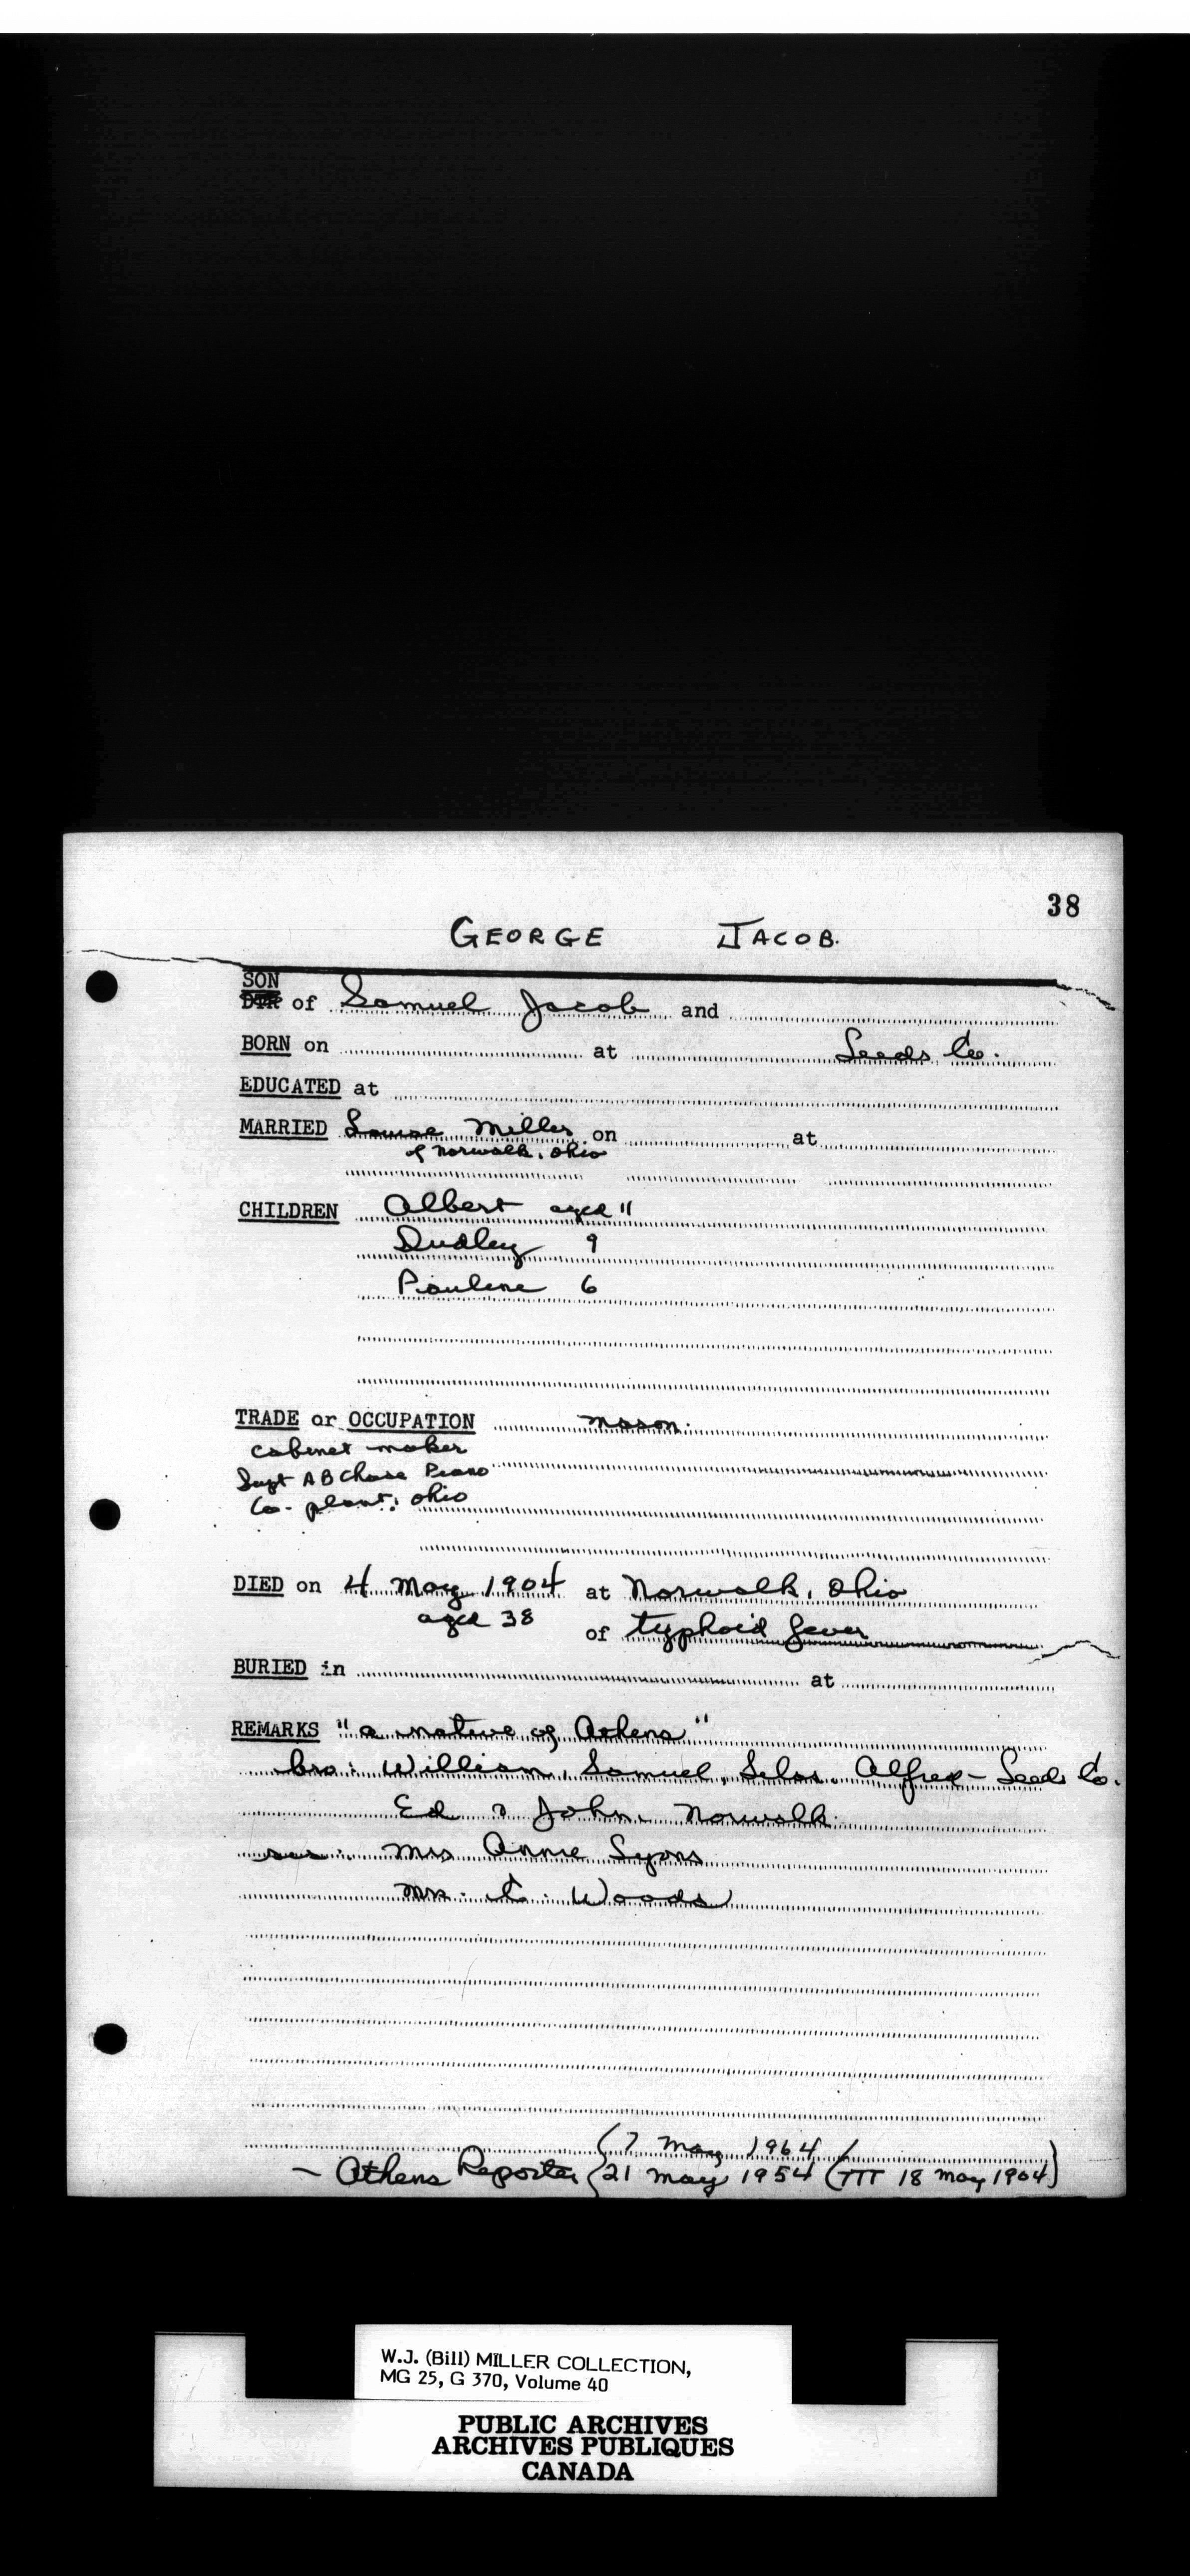 38
GEORGE JACOB.
SON
DTR of Samuel Jacob and
BORN on at Leeds Co.
EDUCATED at
MARRIED Louise Miller on at
of Norwalk, Ohio
CHILDREN Albert aged 11
Dudley 9
Pauline 6
TRADE or OCCUPATION mason.
cabinet maker
Supt A B Chase Piano
Co. plant, Ohio
DIED on 4 May 1904 at Norwalk, Ohio
aged 38 of typhoid fever
BURIED in at
REMARKS "a native of Athens"
bro: William, Samuel, Silas, Alfred - Leeds Co.
Ed & John, Norwalk
sis: Mrs Annie Lyons
Mrs. C. Woods
7 May 1964
~ Athens Reporter 21 May 1954 (TTT 18 May 1904)
W.J. (Bill) MILLER COLLECTION,
MG 25, G 370, Volume 40
PUBLIC ARCHIVES
ARCHIVES PUBLIQUES
CANADA